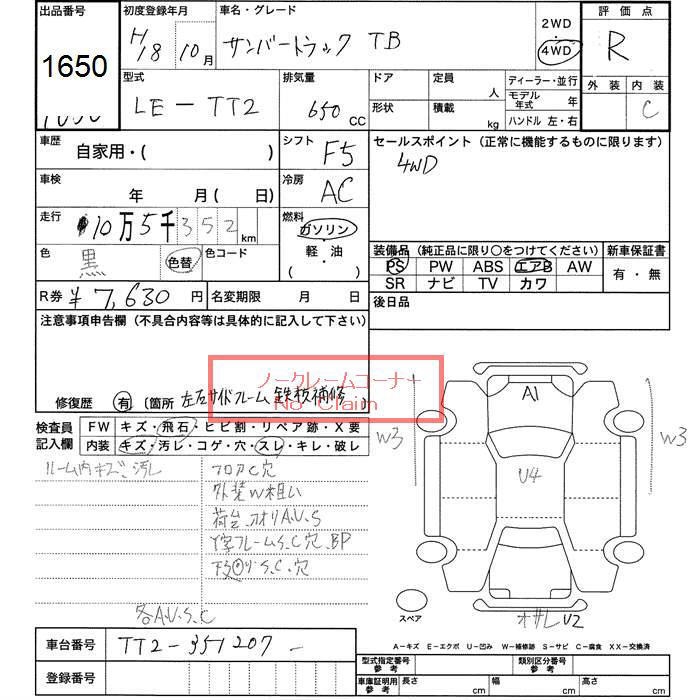 出品番号 初度登録年月 車名・グレード 2WD 4WD 評価点
1650 H18 10月 サンバートラック TB R
型式 排気量 ドア 定員 人 ディーラー・並行 外装 内装
LE-TT2 650 CC 形状 積載 kg モデル年式 年 C
ハンドル 左・右
車歴 シフト セールスポイント(正常に機能するものに限ります)
自家用・( ) F5 4WD
車検 冷房
年 月(日) AC
走行 燃料
10万5千352km ガソリン
色 黒 色替 色コード 軽・油
( ・ )
装備品(純正品に限り○をつけてください) 新車保証書
PS PW ABS エアB AW 有・無
SR ナビ TV カワ
R券 ¥7,630円 名変期限 月 日 後日品
注意事項申告欄(不具合内容等は具体的に記入して下さい)
ノークレームコーナー
No Claim
修復歴 有 〔箇所 左右サイドフレーム 鉄板補修〕
検査員記入欄 FW キズ・飛石・ヒビ割・リペア跡・X要
内装 キズ・汚レ・コゲ・穴・スレ・キレ・破レ
ルーム内キズ、汚レ
フロアC穴
外装W粗い
荷台、アオリA.U.S
Y字フレームS.C穴、BP
下廻りS.C.穴
各A.U.S.C
A1
W3 W3
U4
オサレU2
スペア
A-キズ E-エクボ U-凹み W-補修跡 S-サビ C-腐食 XX-交換済
車台番号 TT2-351207
登録番号
型式指定番号 参考 類別区分番号 参考
車庫証明用 参考 長さ cm 幅 cm 高さ cm